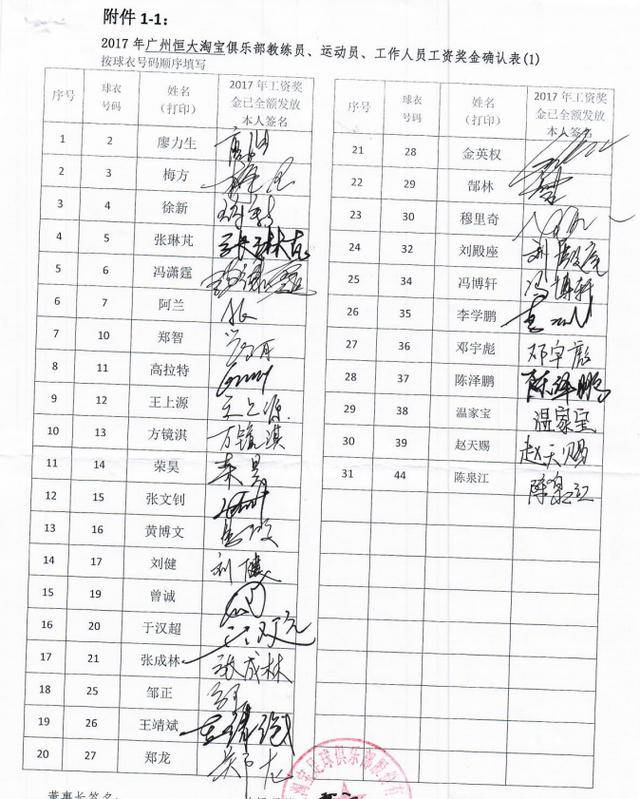 附件 1-1:
2017 年广州恒大淘宝俱乐部教练员、运动员、工作人员工资奖金确认表(1)
按球衣号码顺序填写
序号 球衣号码 姓名（打印） 2017 年工资奖金已全额发放本人签名
1 2 廖力生
2 3 梅方 梅方
3 4 徐新 徐新
4 5 张琳芃 张琳芃
5 6 冯潇霆 冯潇霆
6 7 阿兰
7 10 郑智
8 11 高拉特
9 12 王上源 王上源
10 13 方镜淇 方镜淇
11 14 荣昊 荣昊
12 15 张文钊
13 16 黄博文
14 17 刘健 刘健
15 19 曾诚
16 20 于汉超
17 21 张成林 张成林
18 25 邹正
19 26 王靖斌
20 27 郑龙
序号 球衣号码 姓名（打印） 2017 年工资奖金已全额发放本人签名
21 28 金英权
22 29 郜林
23 30 穆里奇
24 32 刘殿座 刘殿座
25 34 冯博轩 冯博轩
26 35 李学鹏
27 36 邓宇彪 邓宇彪
28 37 陈泽鹏 陈泽鹏
29 38 温家宝 温家宝
30 39 赵天赐 赵天赐
31 44 陈泉江 陈泉江
宝足球俱乐部股份有
董事长签名: